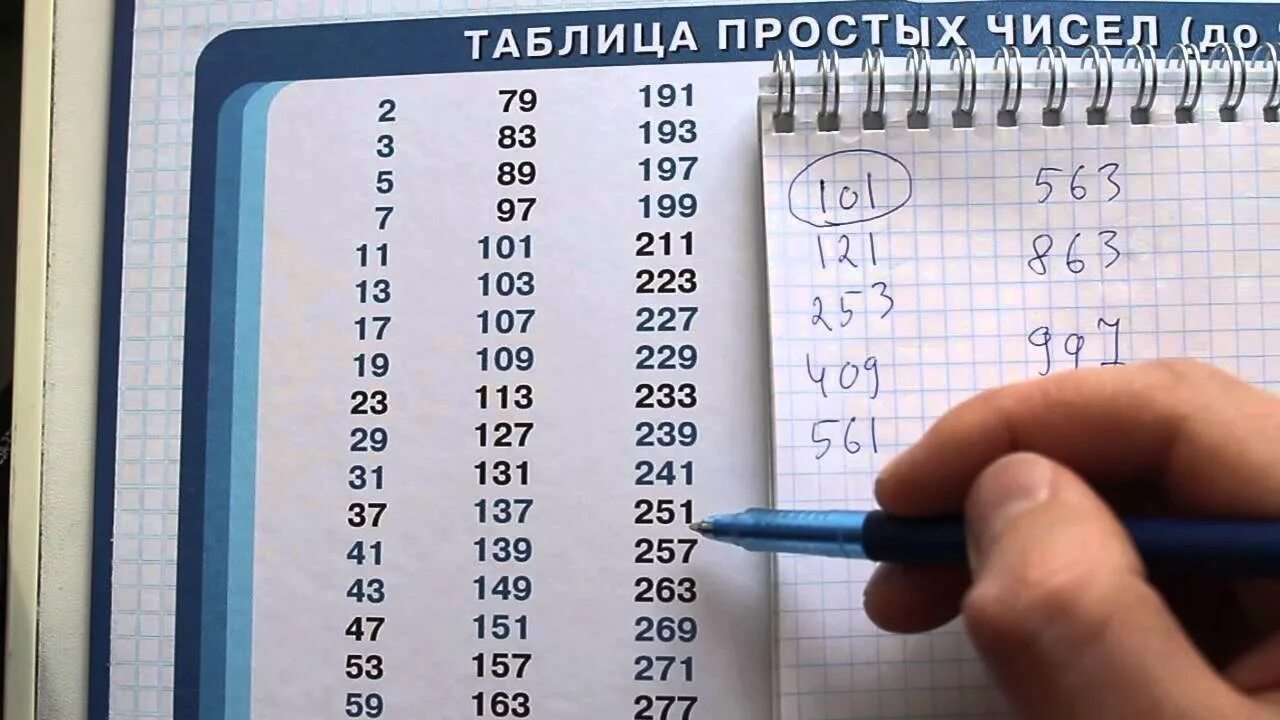 ТАБЛИЦА ПРОСТЫХ ЧИСЕЛ (до
2 79 191
3 83 193
5 89 197
7 97 199
11 101 211
13 103 223
17 107 227
19 109 229
23 113 233
29 127 239
31 131 241
37 137 251
41 139 257
43 149 263
47 151 269
53 157 271
59 163 277
101 563
121 863
253 997
409
561